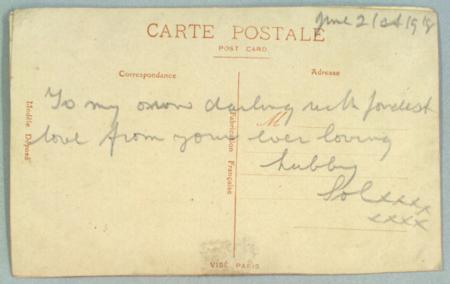 June 21st 1918
CARTE POSTALE
POST CARD
Correspondance
Adresse
To my own darling with fondest
love from your ever loving
hubby
Sol xxxx
xxxx
M
Modèle Déposé
Fabrication Française
VISÉ PARIS